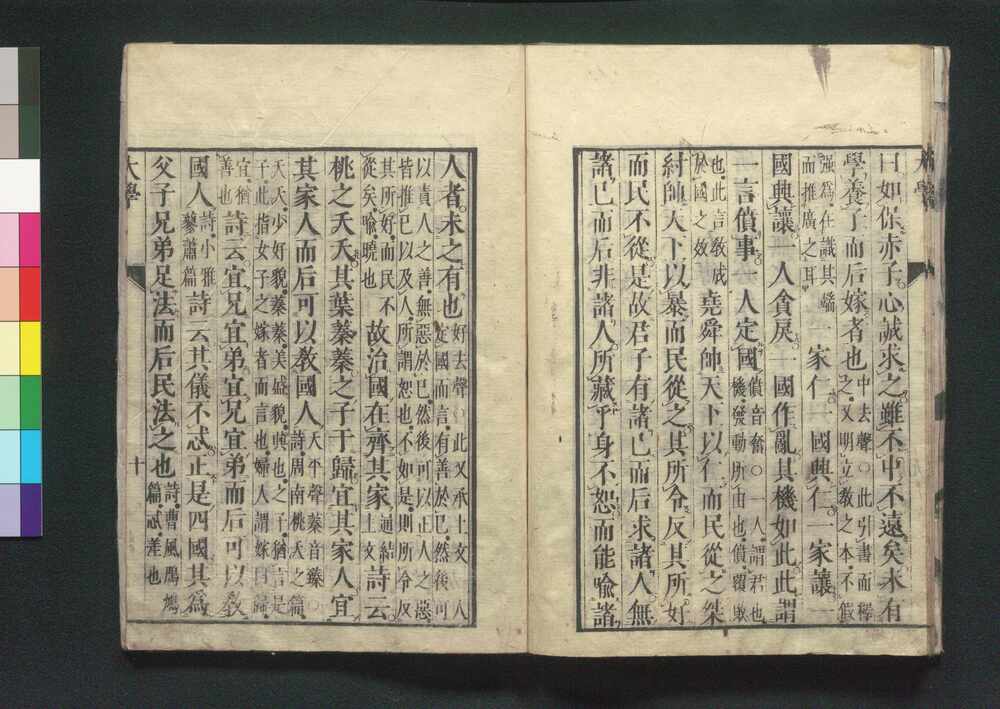 曰如保赤子心誠求之雖不中不遠矣未有
學養子而后嫁者也中去聲○此引書而釋之又明立教之本不假
強爲在識其端而推廣之耳一家仁一國興仁一家讓一
國興讓一人貪戾一國作亂其機如此此謂
一言僨事一人定國僨音奮○一人謂君也機發動所由也僨覆敗
也此言教成於國之效堯舜帥天下以仁而民從之桀
紂帥天下以暴而民從之其所令反其所好
而民不從是故君子有諸己而后求諸人無
諸己而后非諸人所藏乎身不恕而能喻諸
大學
人者未之有也好去聲○此又承上文一人定國而言有善於己然後可
以責人之善無惡於己然後可以正人之惡皆推己以及人所謂恕也不如是則所令反
其所好而民不從矣喻曉也故治國在齊其家通結上文詩云
桃之夭夭其葉蓁蓁之子于歸宜其家人宜
其家人而后可以教國人夭平聲蓁音臻○詩周南桃夭之篇
夭夭少好貌蓁蓁美盛貌興也之子猶言是子此指女子之嫁者而言也婦人謂嫁曰歸
宜猶善也詩云宜兄宜弟宜兄宜弟而后可以教
國人詩小雅蓼蕭篇詩云其儀不忒正是四國其爲
父子兄弟足法而后民法之也詩曹風鳲鳩篇忒差也
大學
十